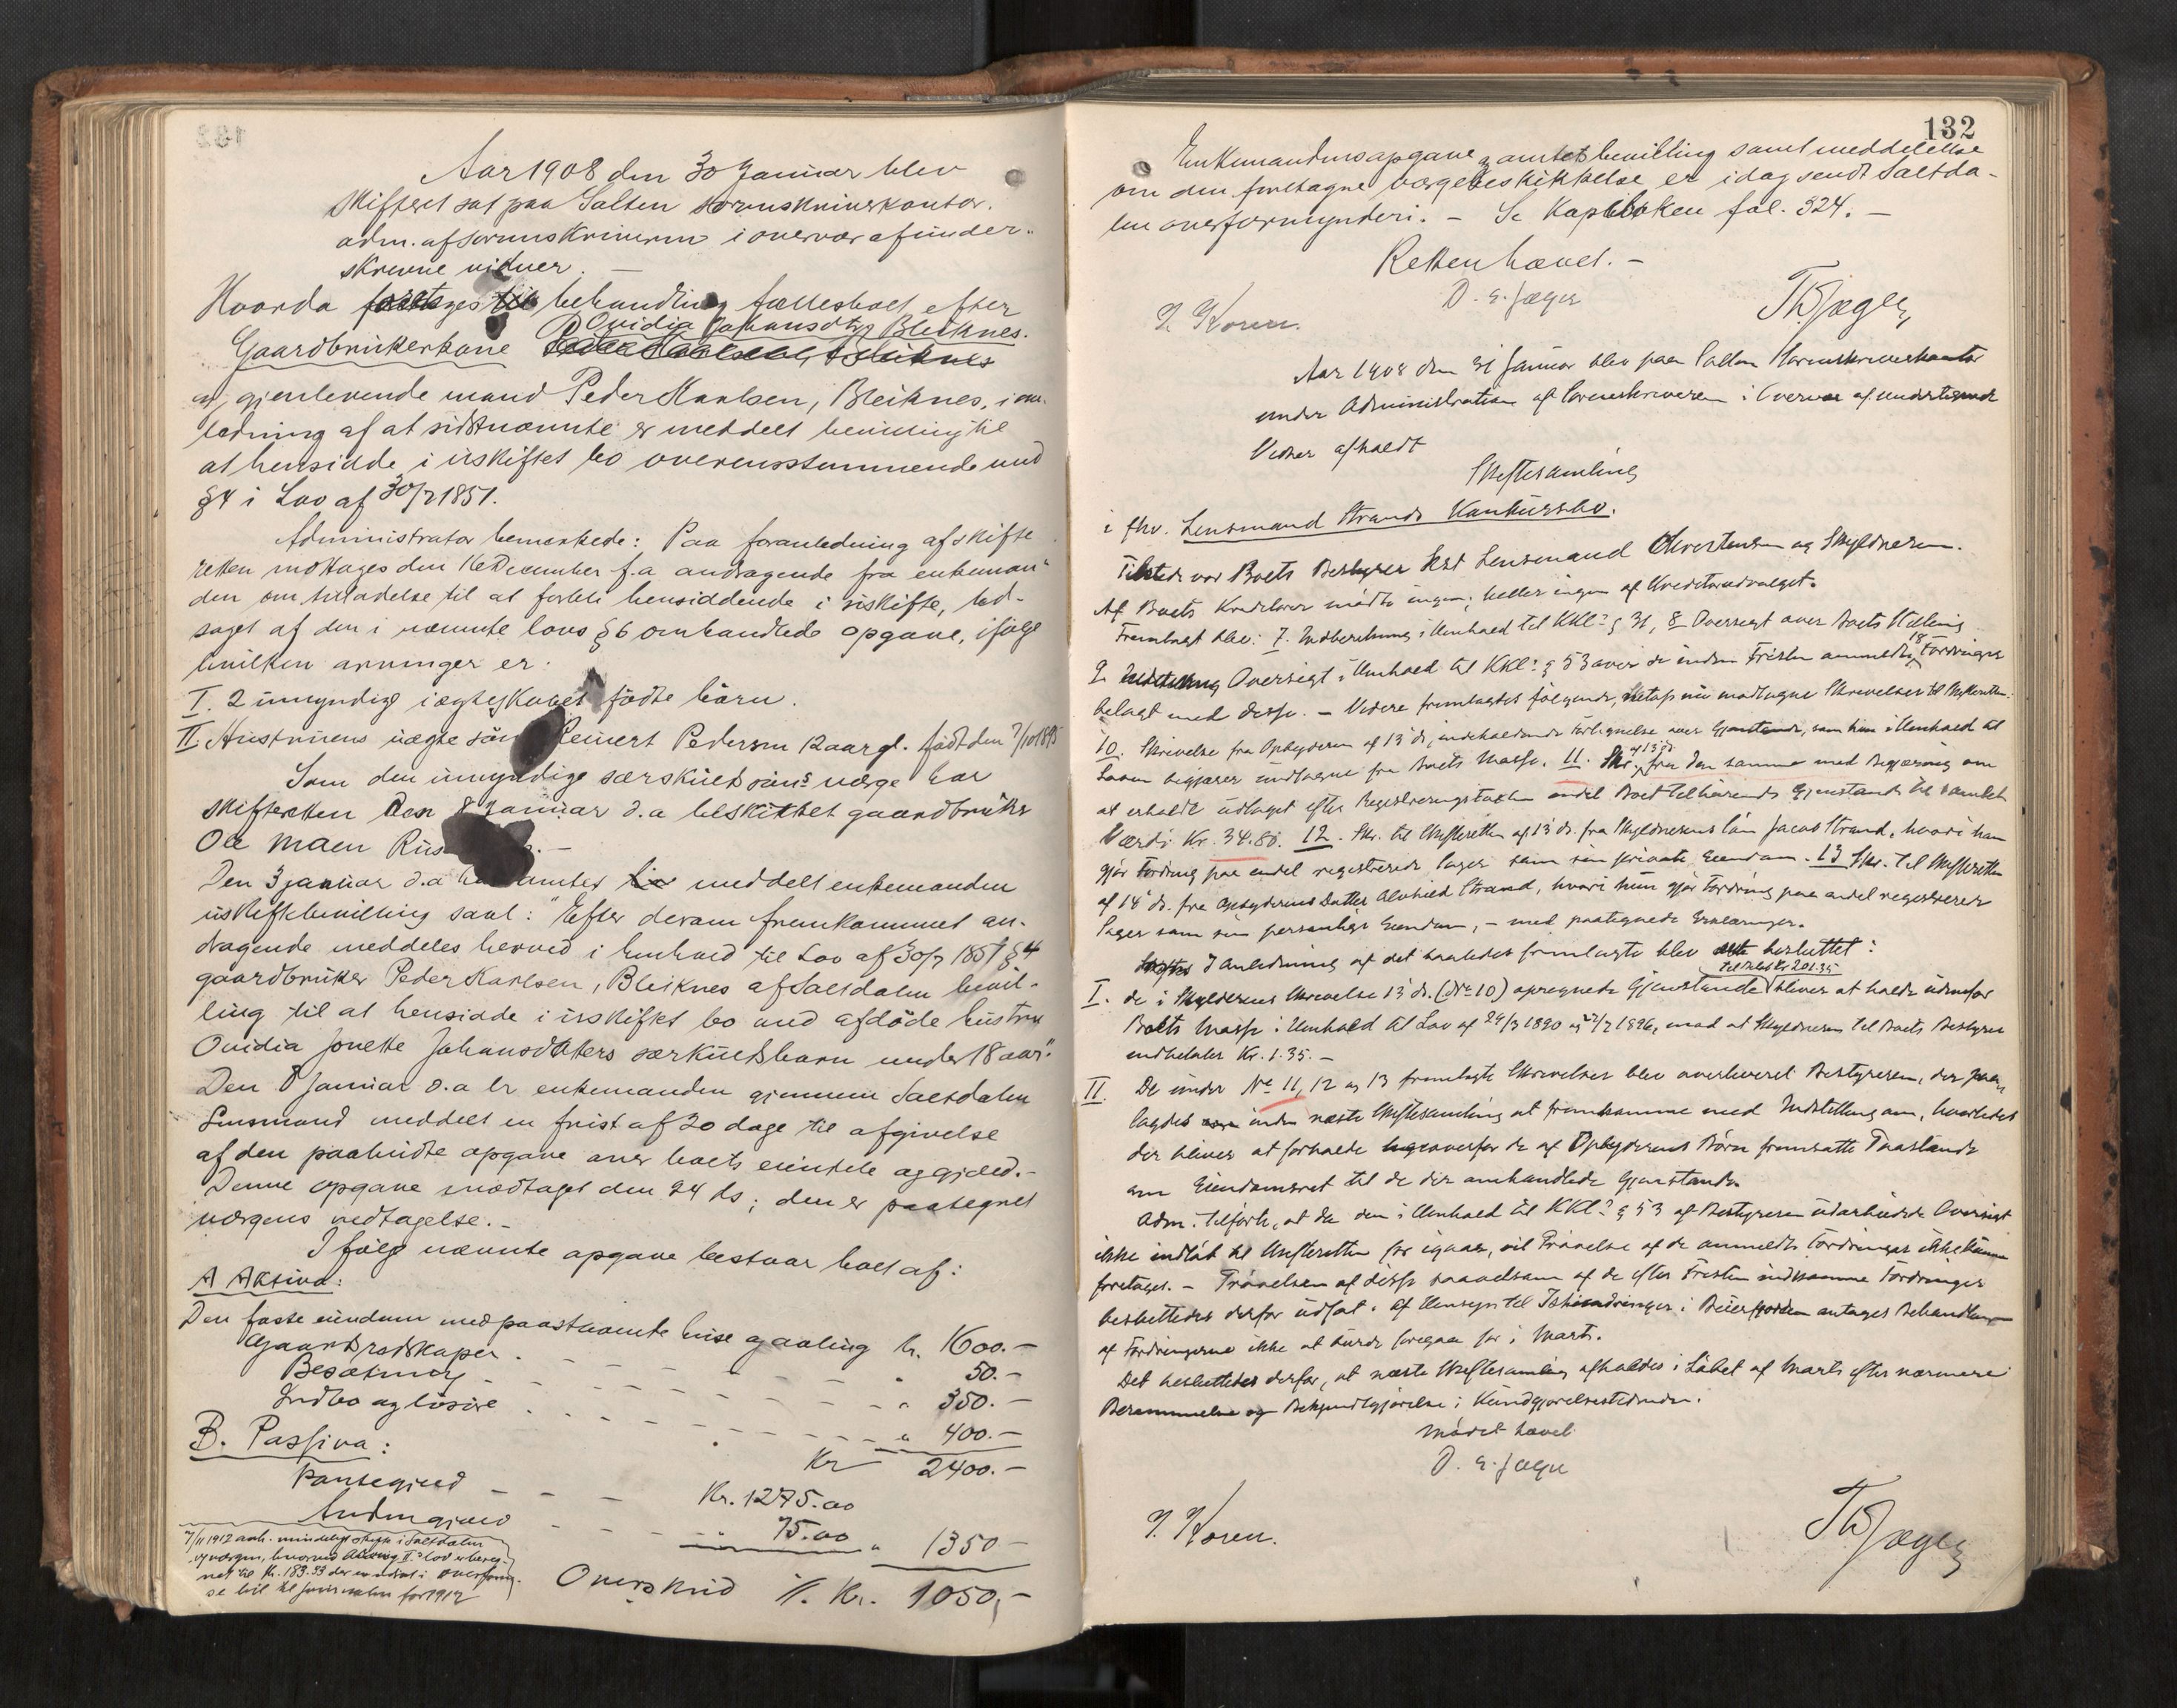 Aar 1908 den 30 Januar blev
Skifteret sat paa Salten sorenskriverkontor.
adm. af sorenskriveren i overvær af under-
skrevne vidner. —
Hvorda foretages til behandling fællesboet efter
Ovidia Johansdtr Bleiknes.
Gaardbrukerkone
m/ gjenlevende mand Peder Karlsen, Bleiknes, i an-
ledning af at sidstnævnte er meddelt bevilling til
at hensidde i uskiftet bo overensstemmende med
§ 4 i Lov af 30/7 1851.
Administrator bemerkede: Paa foranledning af skifte
retten mottages den 16 December f.a andragende fra enkeman-
den om tilladelse til at forbli hensiddende i uskifte, led-
saget af den i nævnte lovs § 6 omhandlede opgave, ifølge
hvilken arvinger er:
I. 2 umyndige i egteskabet fødte børn.
II. Hustruens uegte søn Reinert Pedersen 12 aar gl. født den 7/10 1895
Som den umyndige særskilds søns verge har
skifteretten den 8 Januar d.a beskikket gaardbruker
Ole Maen Rus
Den 3 januar d.a har amtet meddelt enkemanden
uskiftebevilling saal: "Efter derom fremkommet an-
dragende meddeles herved i henhold til Lov af 30/7 1851 § 4
gaardbruker Peder Karlsen, Bleiknes af Saltdalen bevil-
ling til at hensidde i uskiftet bo med afdøde hustru
Ovidia Jonette Johansdatters særkuldsbarn under 18 aar."
Den 8 Januar d.a er enkemanden gjennem Saltdalen
Lensmand meddelt en frist af 20 dage til afgivelse
af den paabudte opgave over boets eiendele og gjeld.-
Denne opgave modtaget den 24 ds; den er paategnet
vergens vedtagelse.-
I følge nævnte opgave bestaar boet af:
A Aktiva:
Den faste eiendom med paastaaende huse og avling Kr. 1600.-
Gaardsredskaper . - - - - " 50.-
Besætning - - - - " 350.-
Indbo og løsøre . . - - - - " 400.-
Kr 2400.-
B. Passiva:
Pantegjeld - - - Kr. 1275.00
Anden gjeld - - - " 75.00 " 1350 -
Overskud Kr. 1050,-
7/11 1912 anh. mindelig skifte i Saltdalen
se bil til journalen for 1912
132
Enkemandens opgave, amtets bevilling samt meddelelse
om den foretagne vergebeskikkelse er idag sendt Saltda-
len overformynderi. - Se Kopiboken fol. 324. -
Retten hævet. -
D. E. Jæger
J. Koren. Th Jæger
Aar 1908 den 31 Januar blev paa Salten Sorenskriverkontor
under Administration af Sorenskriveren i Overvær af undertegnede
Vidner afholdt
Skiftesamling
i fhv. Lensmand Strands Konkursbo.
Tilstede var Boets Bestyrer Lensmand Christensen og Skyldneren.
Af Boets Kreditorer mødte ingen; heller ingen af Kreditorudvalget.
Fremlagt blev: 7. Indberetning i Henhold til KKL: § 31, 8 Oversigt over Boets Stilling
9. Oversigt i Henhold til KKL: § 53 over de inden Fristen anmeldte 18 Fordringer
belagt med disse. - Videre fremlagdes følgende, netop nu modtagne Skrivelser til Skifteretten:
10. Skrivelse fra Opbyderen af 13 ds, indeholdende Fortegnelse over Gjenstande, som han i Henhold til
Loven begjærer undtagne fra Boets Masse. 11. Skr. af 13 ds fra den samme med Begjæring om
at erholde udlagt efter Registreringstaksten endel Boet tilhørende Gjenstande til samlet
Værdi Kr. 34.80. 12. Skr. til Skifteretten af 13 ds. fra Skyldnerens Søn Jacob Strand, hvori han
gjør Fordring paa endel registrerede Sager som sin private Eiendom. 13 Skr. til Skifteretten
af 14 ds. fra Opbyderens Datter Alvhild Strand, hvori hun gjør Fordring paa endel registrerede
Sager som sin personlige Eiendom, - med paategnede Erklæringer.
I Anledning af det saaledes fremlagte blev besluttet:
til Beløb Kr 201.35
I. de i Skylderens Skrivelse 13 ds. (No 10) opregnede Gjenstande bliver at holde udenfor
Boets Masse i Henhold til Lov af 29/3 1890 og 27/7 1896, mod at Skyldneren til Boets Bestyrer
indbetaler Kr. 1.35. -
II. De under No 11, 12 og 13 fremlagte Skrivelser blev overleveret Bestyreren, der paa-
lagdes inden næste Skiftesamling at fremkomme med Indstilling om, hvorledes
der bliver at forholde ligeoverfor de af Opbyderens Børn fremsatte Paastande
om Eiendomsret til de der omhandlede Gjenstande.
Adm. tilførte, at da den i Henhold til KKL: § 53 af Bestyreren udarbeidede Oversigt
ikke indløb til Skifteretten før igaar, vil Prøvelse af de anmeldte Fordringer ikke kunne
foretages. - Prøvelsen af disse saavelsom af de efter Fristen indkomne Fordringer
besluttedes derfor udsat. Af Hensyn til Ishindringer i Beierfjorden antages Behandlingen
af Fordringerne ikke at burde foregaa før i Marts.
Det besluttedes derfor, at næste Skiftesamling afholdes i Løbet af Marts efter nærmere
Berammelse og Bekjendtgjørelse i Kundgjørelsestidende.
Mødet hævet
D. E. Jæger
J. Koren. Th Jæger